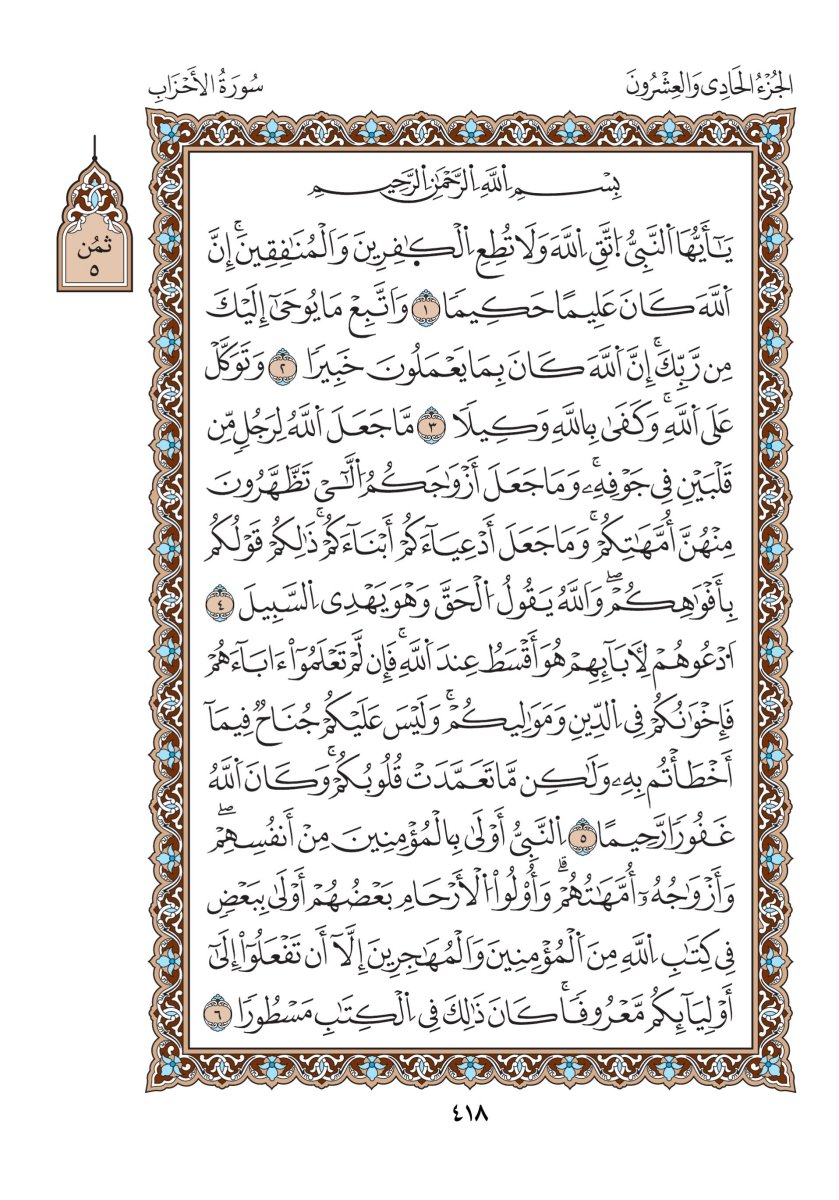 الجُزْءُ الحَادِى وَالعِشْرُونَ
سُورَةُ الأَحْزَابِ
ثُمُن
٥
بِسْمِ اِللَّهِ اِلرَّحْمَٰنِ اِلرَّحِيمِ
يَٰٓأَيُّهَا اَلنَّبِىُّ اُتَّقِ اِللَّهَ وَلَا تُطِعِ اِلْكَٰفِرِينَ وَالْمُنَٰفِقِينَۚ إِنَّ
اَللَّهَ كَانَ عَلِيمًا حَكِيمًا ١ وَاَتَّبِعْ مَا يُوحَىٰٓ إِلَيْكَ
مِن رَّبِّكَۚ إِنَّ اَللَّهَ كَانَ بِمَا يَعْمَلُونَ خَبِيرًا ٢ وَتَوَكَّلْ
عَلَى اَللَّهِۚ وَكَفَىٰ بِاللَّهِ وَكِيلًا ٣ مَّا جَعَلَ اَللَّهُ لِرَجُلٍ مِّن
قَلْبَيْنِ فِى جَوْفِهِۦۚ وَمَا جَعَلَ أَزْوَٰجَكُمُ اُلَّٰٓىْ تَظَّهَّرُونَ
مِنْهُنَّ أُمَّهَٰتِكُمْۚ وَمَا جَعَلَ أَدْعِيَآءَكُمْ أَبْنَآءَكُمْۚ ذَٰلِكُمْ قَوْلُكُم
بِأَفْوَٰهِكُمْۖ وَاللَّهُ يَقُولُ اُلْحَقَّ وَهْوَ يَهْدِى اِلسَّبِيلَ ٤
اَدْعُوهُمْ لِأٓبَآئِهِمْ هُوَ أَقْسَطُ عِندَ اَللَّهِۚ فَإِن لَّمْ تَعْلَمُوٓاْ ءَابَآءَهُمْ
فَإِخْوَٰنُكُمْ فِى اِلدِّينِ وَمَوَٰلِيكُمْۚ وَلَيْسَ عَلَيْكُمْ جُنَاحٌ فِيمَآ
أَخْطَأْتُم بِهِۦ وَلَٰكِن مَّا تَعَمَّدَتْ قُلُوبُكُمْۚ وَكَانَ اَللَّهُ
غَفُورًا رَّحِيمًا ٥ اِلنَّبِىُّ أَوْلَىٰ بِالْمُؤْمِنِينَ مِنْ أَنفُسِهِمْۖ
وَأَزْوَٰجُهُۥٓ أُمَّهَٰتُهُمْۗ وَأُوْلُواْ اُلْأَرْحَامِ بَعْضُهُمْ أَوْلَىٰ بِبَعْضٍ
فِى كِتَٰبِ اِللَّهِ مِنَ اَلْمُؤْمِنِينَ وَالْمُهَٰجِرِينَ إِلَّآ أَن تَفْعَلُوٓاْ إِلَىٰٓ
أَوْلِيَآئِكُم مَّعْرُوفًاۚ كَانَ ذَٰلِكَ فِى اِلْكِتَٰبِ مَسْطُورًا ٦
٤١٨